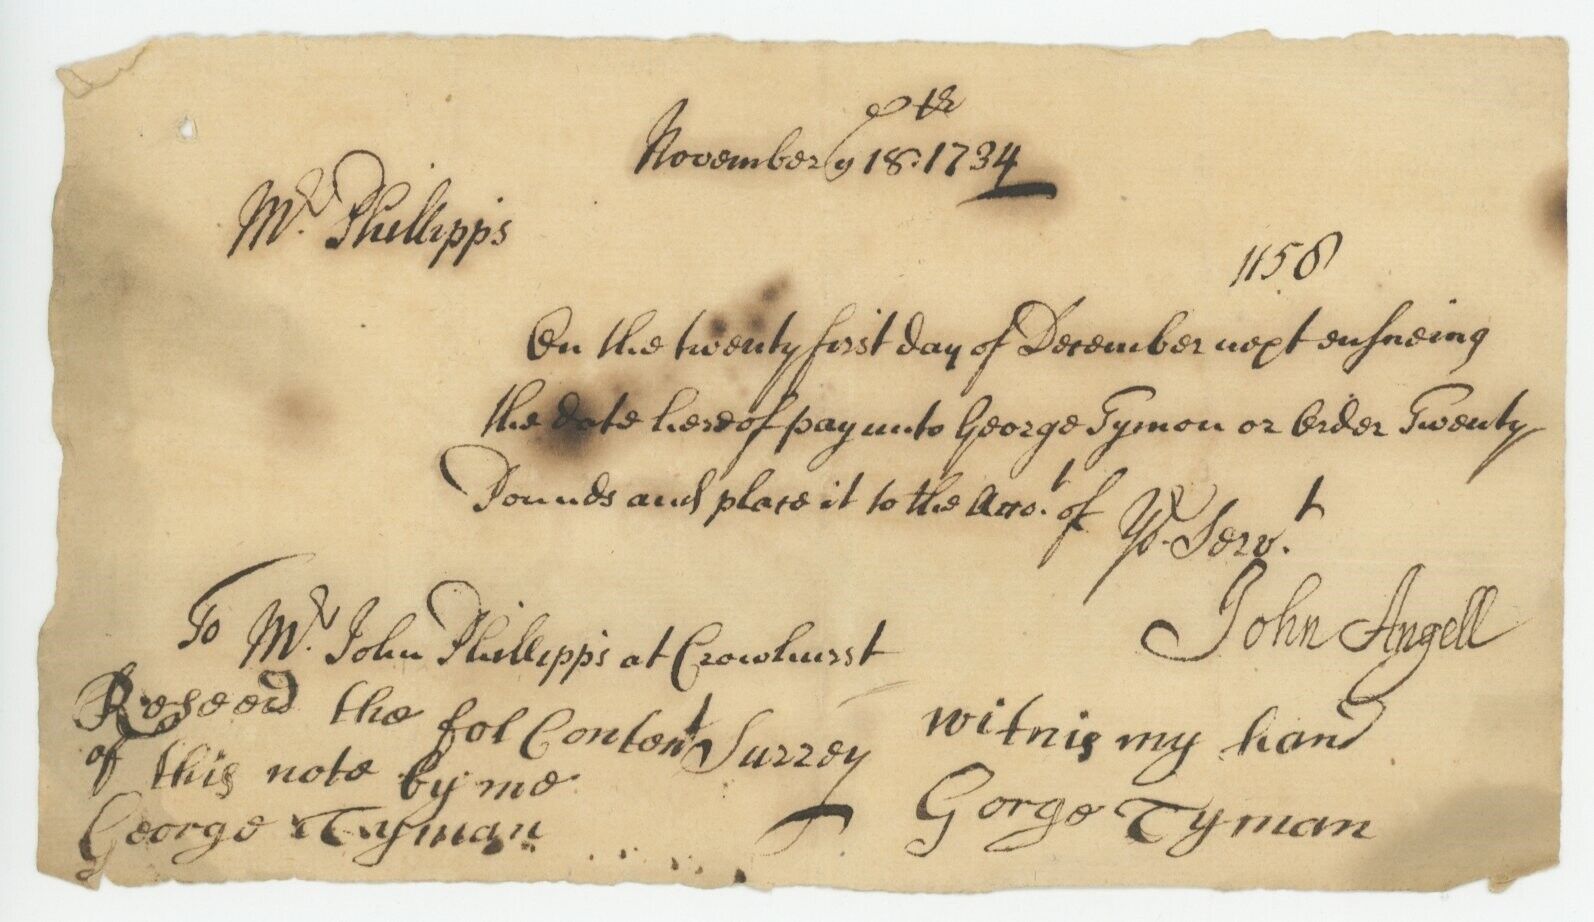 November ye 18th: 1734
Mr. Phillipps
1158
On the twenty first day of December next ensueing
the date hereof pay unto George Tymon or Order Twenty
Pounds and place it to the Acco.t of Yr. Serv.t
John Angell
To Mr. John Phillipps at Crowhurst
Surrey
Reseed the fol Content
of this note by me
George Tyman
witnis my hand
Gorge Tyman